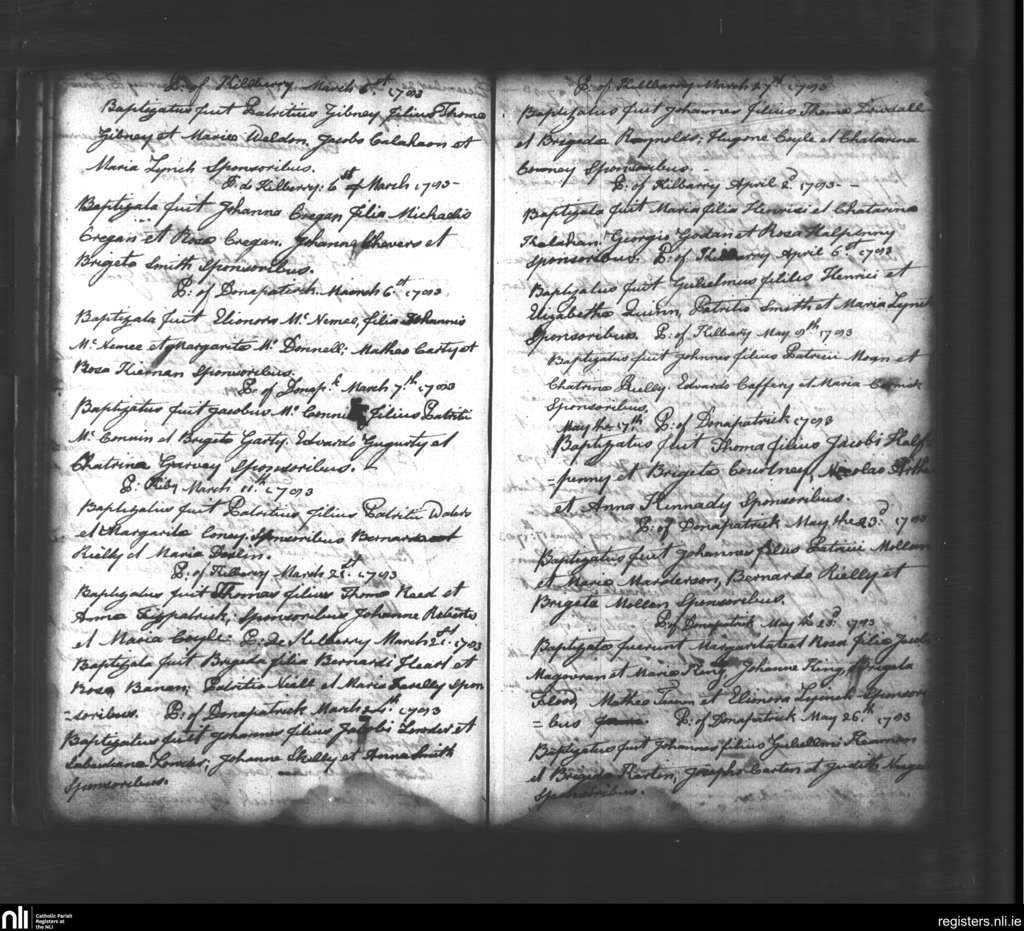 P: of Kilberry March 6th 1793
Baptizatus fuit Patritius Gibney filius Thoma
Gibney et Maria Weldon, Jacobo Calahaon et
Maria Lynch Sponsoribus.
P: de Kilberry: 6st of March 1793-
Baptizata fuit Johanna Cregan filia Michaelis
Cregan et Rosa Cregan. Johanne Chevers et
Brigeta Smith Sponsoribus.
P: of Donapatrick. March 6st 1793
Baptizata fuit Elionora Mc Nemee, filia Johannis
Mc Nemee et Margarita Mc Donnell; Matheo Carty et
Rosa Kiernan Sponsoribus.
P: of Donap:k March 7.th 1793
Baptizatus fuit Jacobus Mc filius Patritii
Mc Connin et Brigeta Garty. Edvardo et
Chatrina Garvey Sponsoribus.
P: Kilby March 11.th 1793
Baptizatus fuit Patritius filius Patritii
et Margarita Coney. Sponsoribus Bernardo
Rielly et Maria Devlin.
P: of Kilberry March 21st 1793
Baptizatus fuit Thomas filius Thoma Reed et
Anna Fizpatrick, Sponsoribus Johanne
et Maria Coyle: P: De Kilberry March 21st 1793
Baptizata fuit Brigeda filia Bernardi et
Rosa Banan; Patritio Niell et Maria Spon
=soribus. P: of Donapatrick March 24st 1793
Baptizatus fuit Johannes filius Jacobi Lowder et
Lowder, Johanne Skelly et Anna Smith
Sponsoribus.
P: of Killberry March 27th 1793
Baptizatus fuit Johannes filius Thoma Dowdall
et Brigeda Raynolds, Hugone Coyle et Chatarina
Sponsoribus. -
P: of Kilbarry April 2d 1793--
Baptizata fuit Maria filia Henrici et Chatarina
Georgio Godan et Rosa Halpenny
Sponsoribus. P: of April 6st 1793
Baptizatus fuit Gulielmus filius Henrici et
Elizabetha Quinn, Patritio Smith et Maria Lynch
Sponsoribus. P: of Kilbary May 9th, 1793
Baptizatus fuit Johannes filius Patricii et
Chatrina Rielly. Edvardo Caffery et Maria
Sponsoribus.
May the 17th P: of Donapatrick 1793
Baptizatus fuit Thoma filius Jacobi Half-
=penny et Brigeta Courtney, Nicolao
et Anna Kennady Sponsoribus.
P: of Donapatrick May the 23d 1793
Baptizatus fuit Johannes filius Patricii Mollan
et Maria Bernardo Rielly et
Brigeta Mollan Sponsoribus.
P: of Donapatrick May the 23d 1793
Baptizata fuerunt Margarita et Rosa filia Jacobi
Magovran et Maria King, Johanne King, Brigeta
Flood, Matheo et Elinora Sponsori
=bus P: of Donapatrick May 26th 1793
Baptizatus fuit Johannes filius Gulielmi
et Brigeda Josepho Carton et Judith
Sponsoribus.
nli
Catholic Parish
Registers at
the NLI
registers.nli.ie